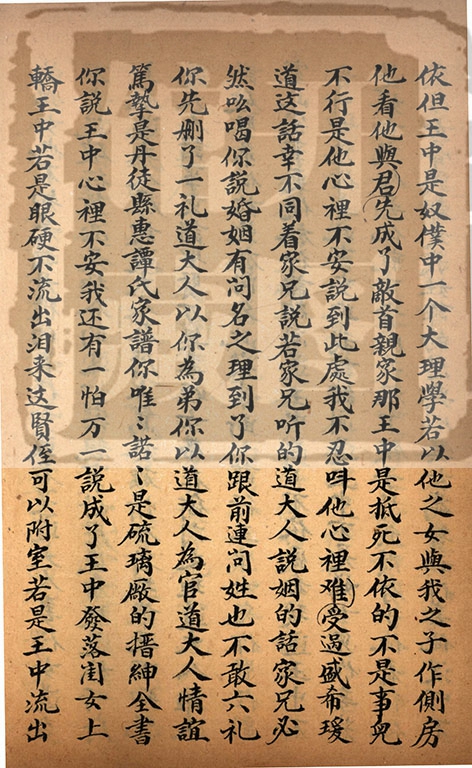 依但王中是奴僕中一个大理學若以他之女與我之子作側房
他看他與君先成了敵首親家那王中是抵死不依的不是事皃
不行是他心裡不安說到此處我不忍呌他心裡难受過盛希瑗
道这話幸不同着家兄說若家兄听的道大人說姻的話家兄必
然吆喝你說婚姻有问名之理到了你跟前連问姓也不敢六礼
你先删了一礼道大人以你為弟你以道大人為官道大人情誼
篤摯是丹徒縣惠譚氏家譜你唯〻諾〻是硫璃厰的搢紳全書
你說王中心裡不安我还有一怕万一說成了王中發落闺女上
轎王中若是眼硬不流出泪来这賢侄可以附室若是王中流出